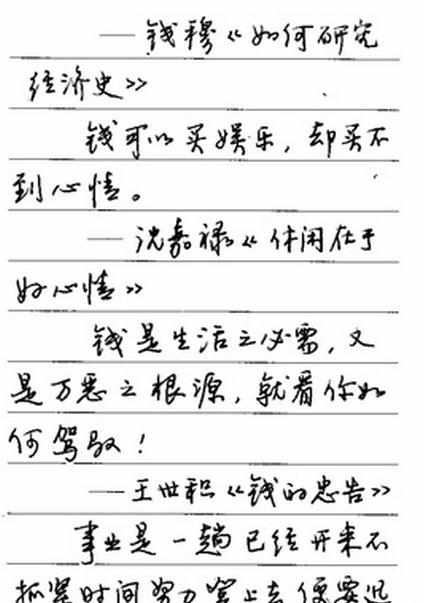 ——钱穆《如何研究
经济史》
钱可以买娱乐，却买不
到心情。
——沈嘉禄《休闲在于
好心情》
钱是生活之必需，又
是万恶之根源，就看你如
何驾驭！
——王世积《钱的忠告》
事业是一趟已经开来不
抓紧时间努力登上去便要迅